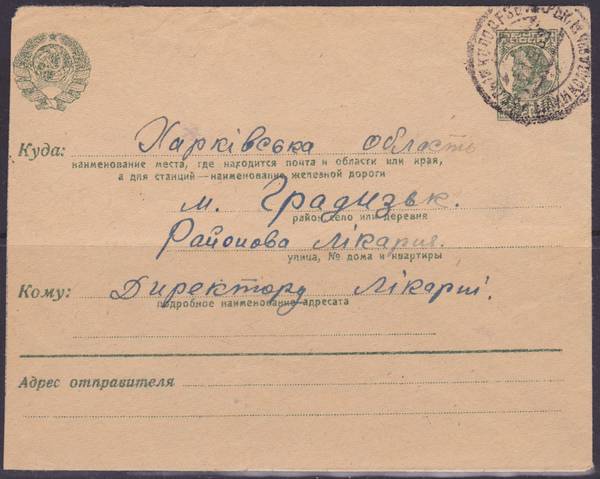 Куда: Харківська область
наименование места, где находится почта и области или края,
а для станций—наименование железной дороги
м. Градизьк.
район, село или деревня
Районова Лікарня.
улица, № дома и квартиры
Кому: Директору Лікарні.
подробное наименование адресата
Адрес отправителя